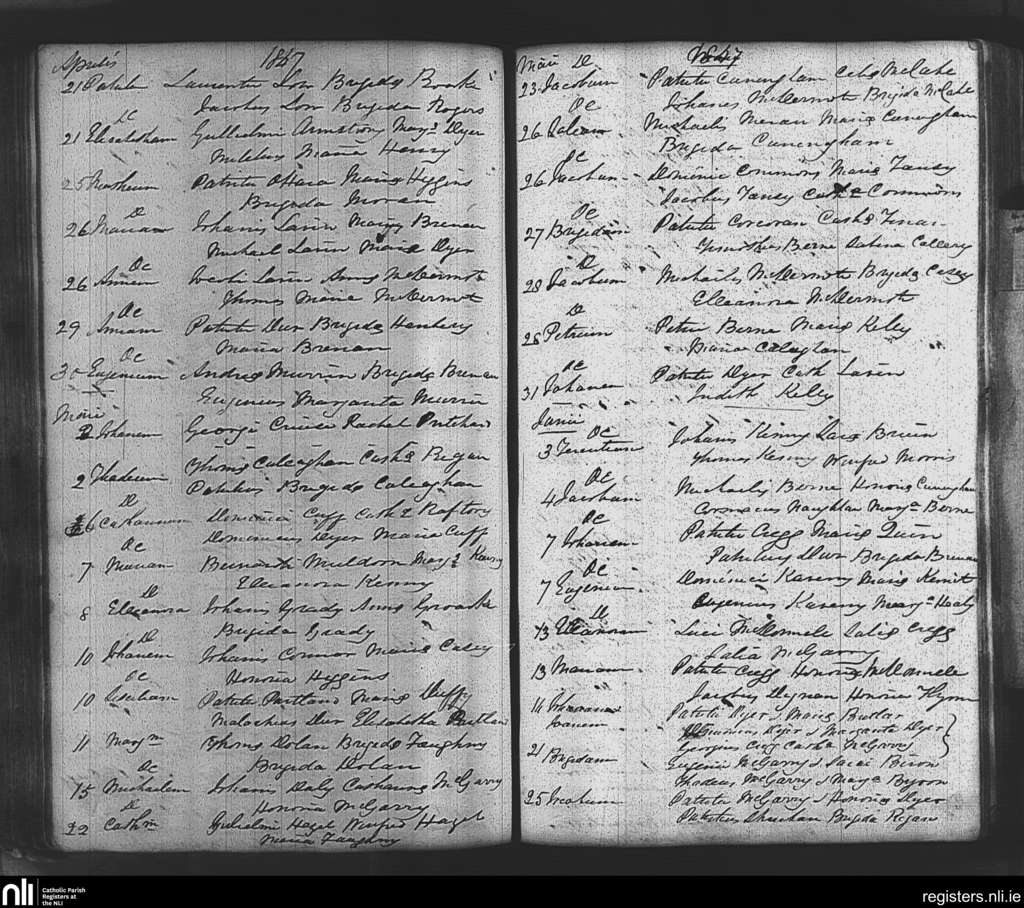 Aprilis 1847
21 Patritu Laurentii Low Brigida Rooke
Jacobus Low Brigida Rogers
De
21 Elisabetham Gullielmi Armstrong Maryᵃ Dyer
Maria Henry
25 Patritii OHara Maria Higgins
Brigida Moran
De
26 Mariam Johanis Lavin Maria Brenan
Michael Lavin Maria Dyer
De
26 Annam Lavin Anna McDermott
Thomas Maria McDermott
De
29 Patritii Dur Brigida Hanbery
Maria Brenan
De
30 Eugenium Andrea Murrin Brigida Brenan
Eugenius Margarita Murrin
Maii
2 Johanem Georgi Cruise Rachel Pritchard
2 Thadeum Thoma Caleaghan Cathᵃ Regan
Patritius Brigida Caleaghan
De
6 Dominici Cuff Cathᵃ Raftory
Dominicus Dyer Maria Cuff
De
7 Mariam Bernardi Muldoon Maryᵃ Kenny
Eleanora Kenny
De
8 Eleanora Johanis Grady Anna Groarke
Brigida Grady
De
10 Johanem Johanis Connor Maria Casey
Honoria Higgins
De
10 Patritii Partland Maria Duffy
Malachias Dur Elisabetha Partlan
11 Maryᵐ Thoma Dolan Brigida Faughny
Brigida Dolan
De
15 Michaelem Johanis Daly McGarry
Honoria McGarry
De
22 Cathᵐ Gulielmi Haget Winifred Haget
Maria Faughny
Maii De 1847
23 Jacobum Patritii Cunengham Celia McCabe
Johanes McDermott Brigida McCabe
De
26 Michaelis Meran Maria Cunengham
Brigida Cunengham
De
26 Jacobum Dominic Commons Maria Tansey
Jacobus Tansey Cathᵃ Commons
De
27 Brigidam Patritii Corcoran Cathᵃ
Timothius Berne Sabina Callery
De
28 Jacobum Michaelis McDermott Brigida Casey
Eleanora McDermott
De
28 Petrum Petri Berne Maria Kelly
Maria Caleghan
De
31 Johanem Patritii Dyer Cath Lavin
Judith Kelly
Junii
De
3 Terentium Johanis Kenny Sara Bruen
Thomas Kenny Winifred Morris
De
4 Jacobum Michaelis Berne Honoria Cunengham
Cormacus Naughtan Maryᵃ Berne
De
7 Johanem Patritii Cregg Maria Quin
Patritius Dur Brigida Brenan
De
7 Eugenium Dominici Kaveny Maria
Eugenius Kaveny Maryᵃ Healy
De
13 Eleanoram Luci McDonnele Sabia Cregg
Sabia McGarry
13 Mariam Patritii Cregg Honoria McDonnele
Jacobus Dignan Honoria Flynn
14 Patritii Dyer & Maria Butler
Dominicus Dyer & Margarita Dyer
Georgius Cuff Catha McGarry
21 Brigidam Eugenii McGarry & Sarai Biron
Thadeus McGarry & Marya Byron
25 Patritii McGarry & Honoria Dyer
Patritius Sheehan Brigida Regan
nli
Catholic Parish
Registers at
the NLI
registers.nli.ie